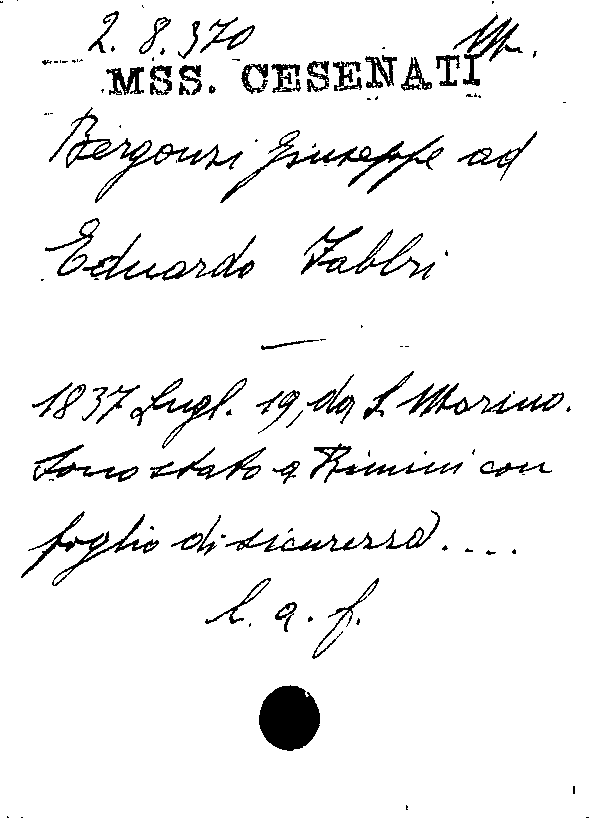 2. 8. 370 M.
MSS. CESENATI
Bergonzi Giuseppe ad
Eduardo Fabbri
—
1837 Lugl. 19, da S. Marino.
Sono stato a Rimini con
foglio di sicurezza....
l. a. f.